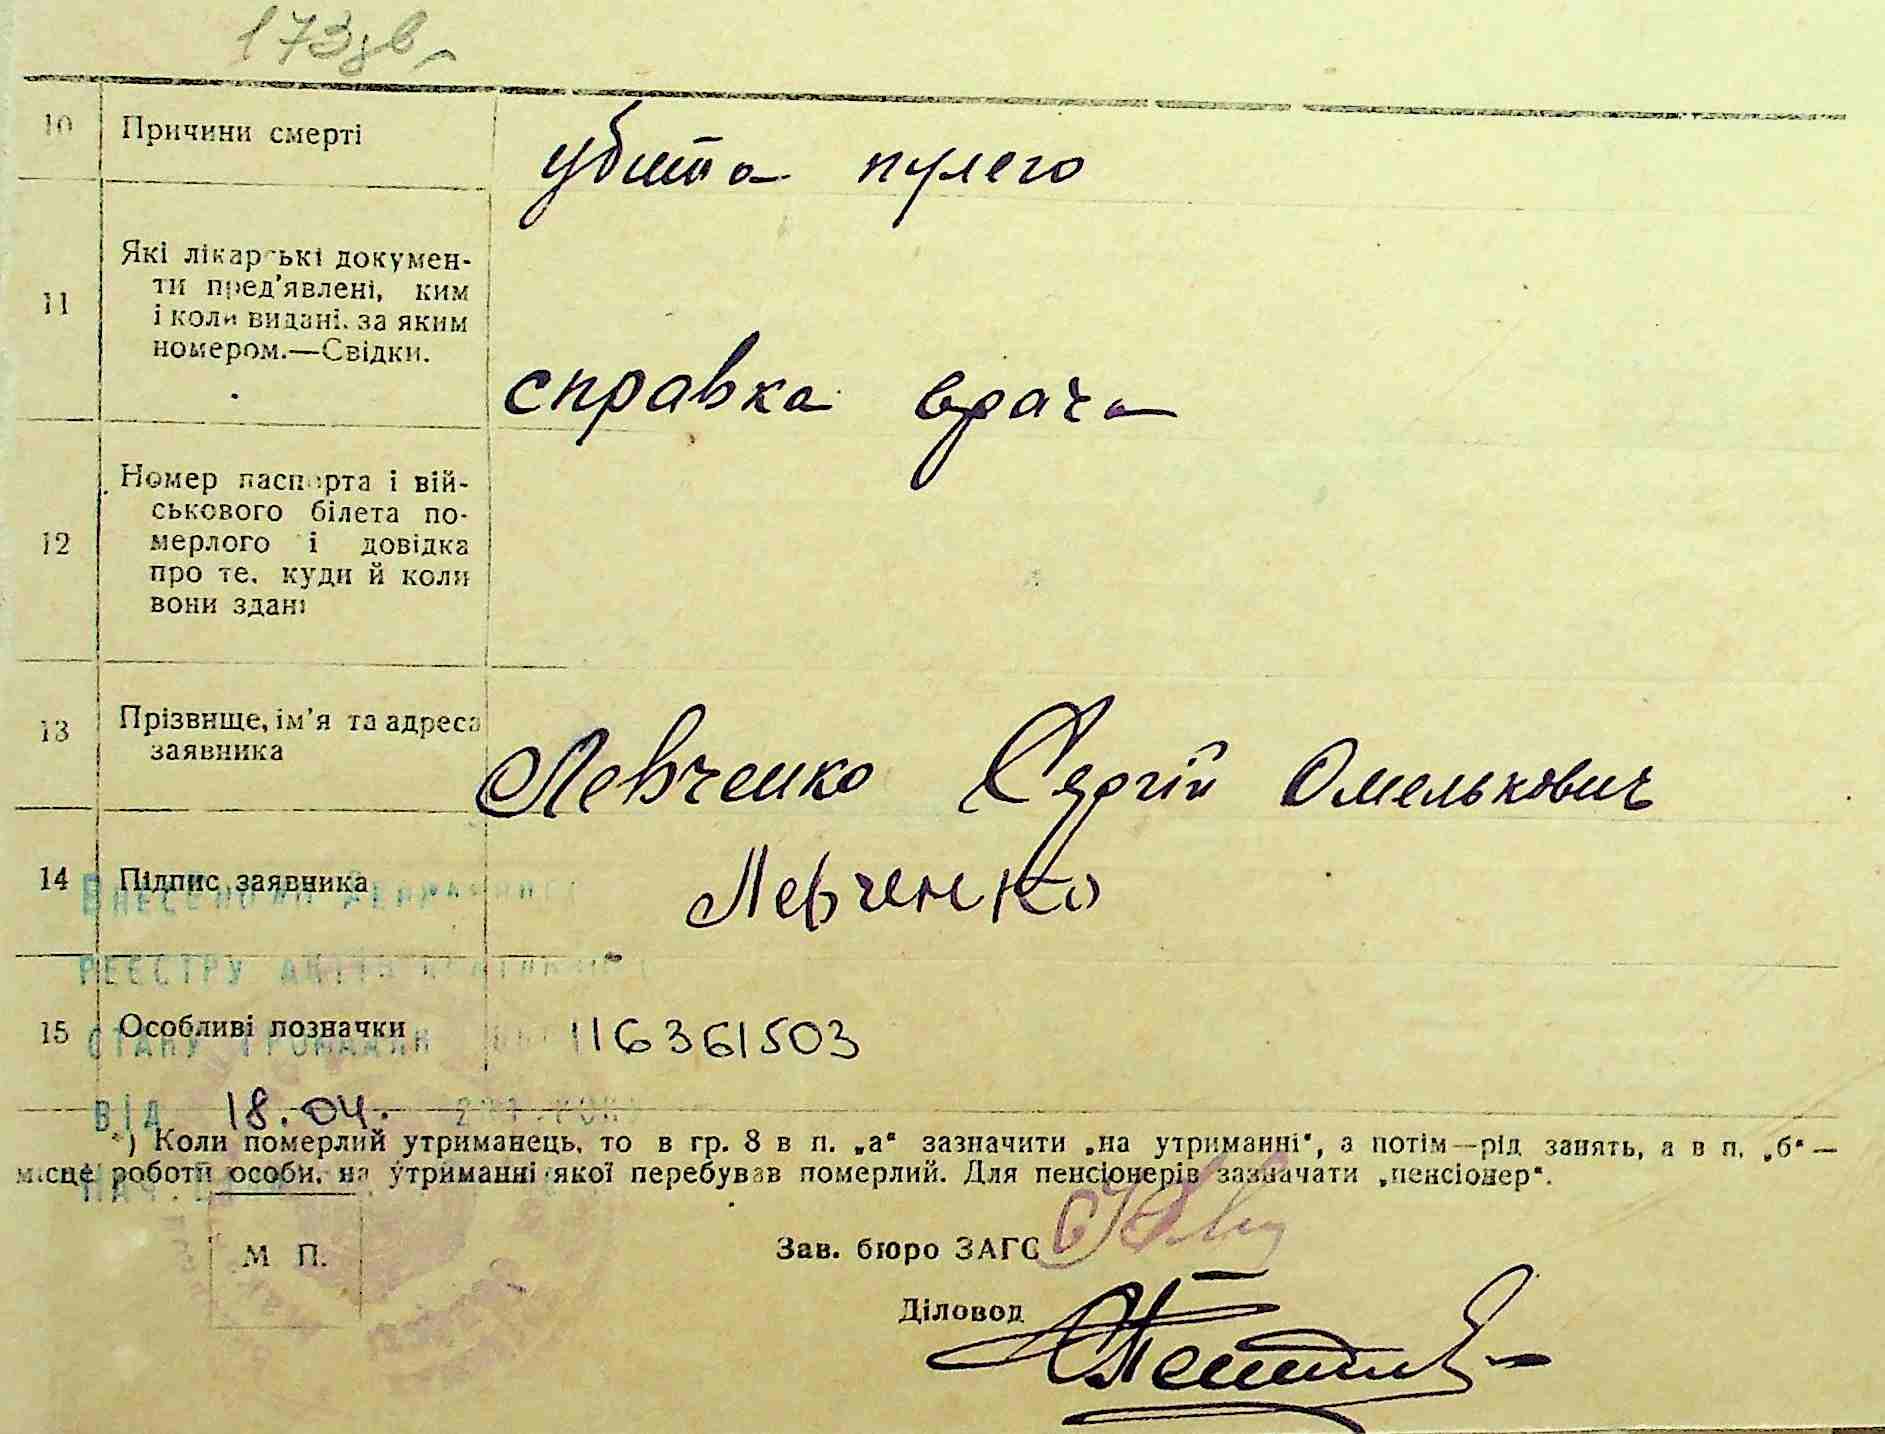 173зв
10 Причини смерті убита пулего
11 Які лікарські докумен-
ти пред'явлені, ким
і коли видані, за яким
номером.—Свідки.
справка врача
12 Номер паспорта і вій-
ськового білета по-
мерлого і довідка
про те, куди й коли
вони здані
13 Прізвище, ім'я та адреса
заявника
Левченко Сергій Омелькович
14 Підпис заявника Левченко
Внесено до Державного
реєстру актів
15 Особливі позначки 116361503
стану громадян
від 18.04. року
*) Коли померлий утриманець, то в гр. 8 в п. „а“ зазначити „на утриманні“, а потім—рід занять, а в п. „б“—
місце роботи особи, на утриманні якої перебував померлий. Для пенсіонерів зазначати „пенсіонер“.
М П.
Зав. бюро ЗАГС
Діловод